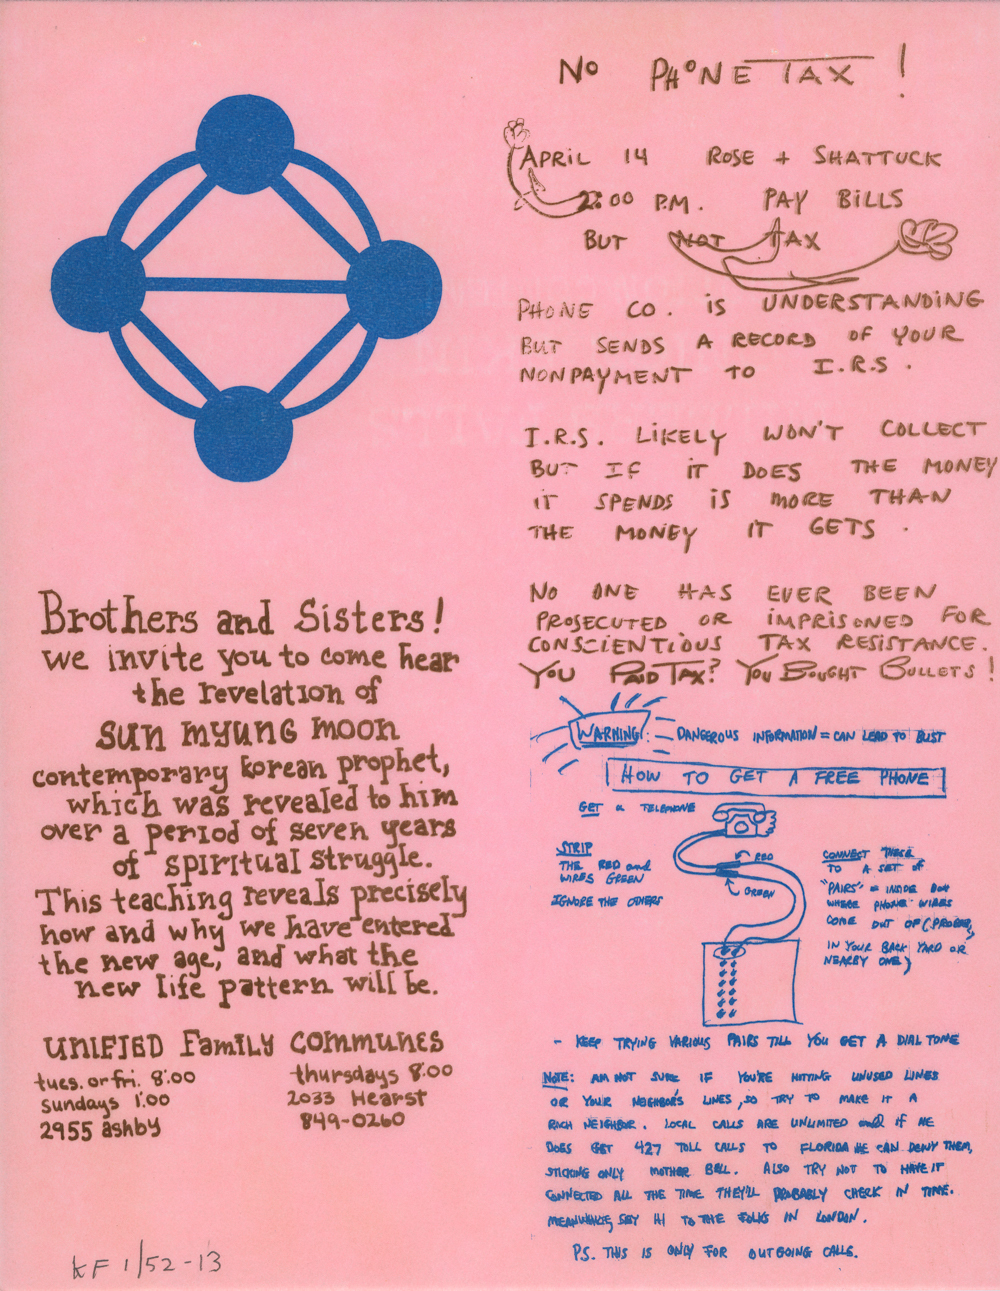 Brothers and Sisters!
we invite you to come hear
the revelation of
sun myung moon
contemporary korean prophet,
which was revealed to him
over a period of seven years
of spiritual struggle.
This teaching reveals precisely
how and why we have entered
the new age, and what the
new life pattern will be.
UNIFIED Family COMMUNES
tues. or fri. 8:00
sundays 1:00
2955 ashby
thursdays 8:00
2033 Hearst
849-0260
KF 1/52-13
NO PHONE TAX!
APRIL 14 ROSE + SHATTUCK
2:00 P.M. PAY BILLS
BUT NOT TAX
PHONE CO. IS UNDERSTANDING
BUT SENDS A RECORD OF YOUR
NONPAYMENT TO I.R.S.
I.R.S. LIKELY WON'T COLLECT
BUT IF IT DOES THE MONEY
IT SPENDS IS MORE THAN
THE MONEY IT GETS.
NO ONE HAS EVER BEEN
PROSECUTED OR IMPRISONED FOR
CONSCIENTIOUS TAX RESISTANCE.
YOU PAID TAX? YOU BOUGHT BULLETS!
WARNING: DANGEROUS INFORMATION = CAN LEAD TO BUST
HOW TO GET A FREE PHONE
GET a TELEPHONE
STRIP
THE RED and
WIRES GREEN
IGNORE THE OTHERS
RED
GREEN
CONNECT THESE
TO A SET OF
"PAIRS" = INSIDE BOX
WHERE PHONE WIRES
COME OUT OF (PROBAB,
IN YOUR BACK YARD OR
NEARBY ONE)
- KEEP TRYING VARIOUS PAIRS TILL YOU GET A DIAL TONE
NOTE: AM NOT SURE IF YOU'RE HITTING UNUSED LINES
OR YOUR NEIGHBOR'S LINES, SO TRY TO MAKE IT A
RICH NEIGHBOR. LOCAL CALLS ARE UNLIMITED and IF HE
DOES GET 427 TOLL CALLS TO FLORIDA HE CAN DENY THEM,
STICKING ONLY MOTHER BELL. ALSO TRY NOT TO HAVE IT
CONNECTED ALL THE TIME THEY'LL PROBABLY CHECK IN TIME.
MEANWHILE, SAY HI TO THE FOLKS IN LONDON.
PS. THIS IS ONLY FOR OUTGOING CALLS.